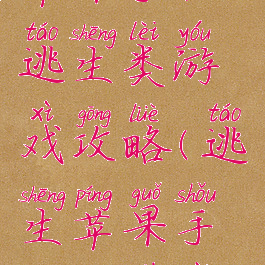 táo shēng lèi yóu
逃生类游
xì gōng lüè táo
戏攻略(逃
shēng píng guǒ shǒu
生苹果手